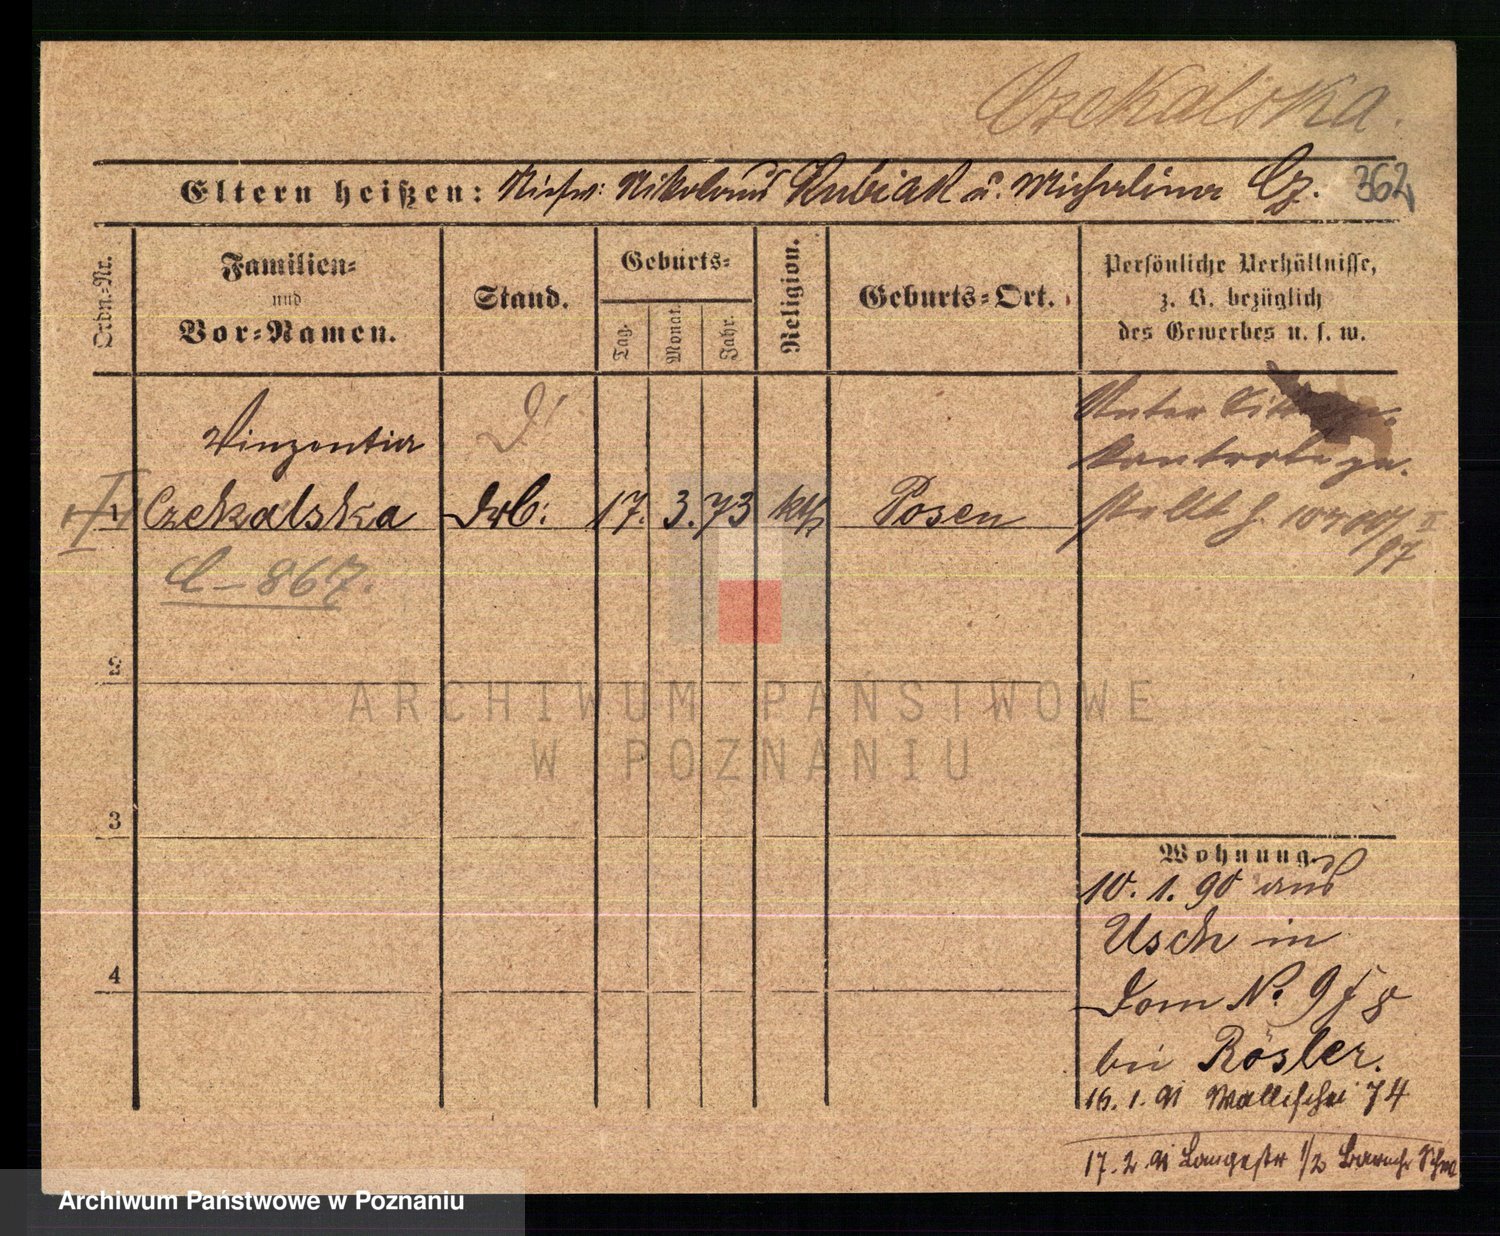 Czekalska.
Eltern heißen: Nikolaus Kubiak u. Michalina Cz. 362
Ordn.-Nr.
Familien-
und
Vor-Namen.
Stand.
Geburts-
Tag.
Monat.
Jahr.
Religion.
Geburts-Ort.
Persönliche Verhältnisse,
z. B. bezüglich
des Gewerbes u. s. w.
Vinzentia
1 Czekalska 17. 3. 73 kth Posen
Unter
kontrole ge-
stellt
97
C-867.
2
3
4
ARCHIWUM PAŃSTWOWE
W POZNANIU
Wohnung.
10. 1. 90 aus
Usch in
Dom No. 9
bei Rösler.
16. 1. 91 Wallischei 74
17. 2. 91 Langestr 1/2
Archiwum Państwowe w Poznaniu